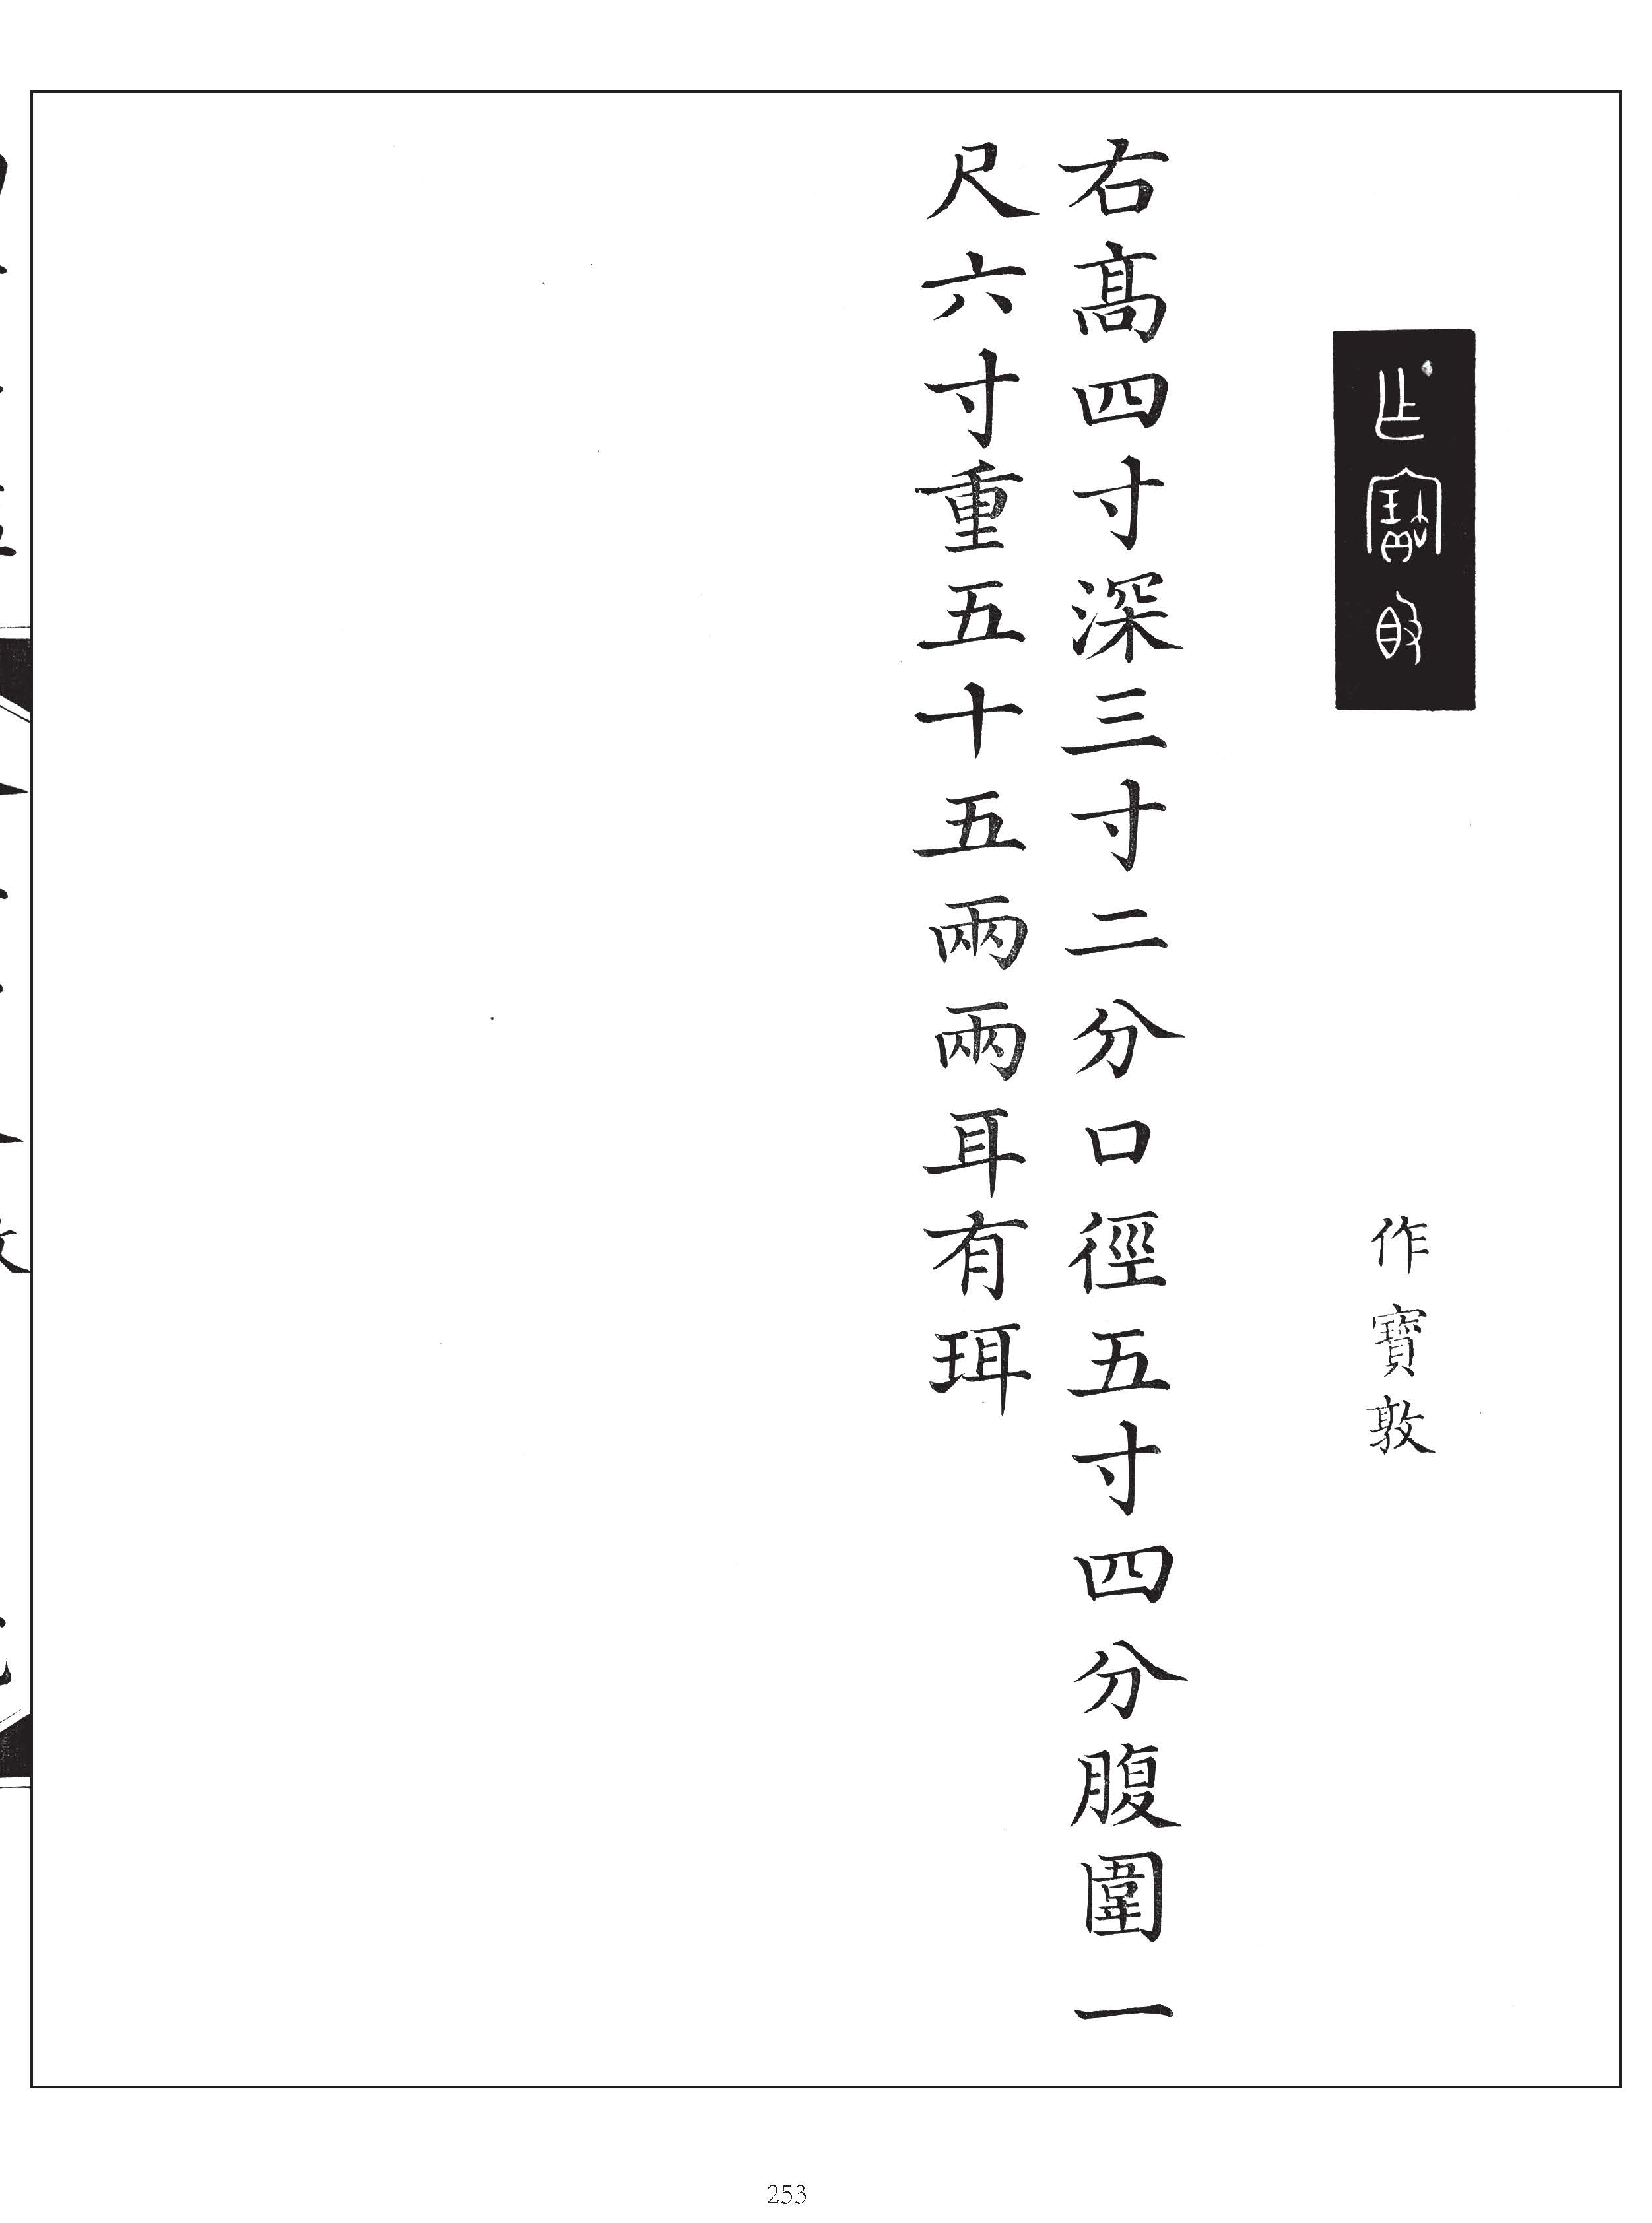 作寶敦
作寶敦
右高四寸深三寸二分口徑五寸四分腹圍一
尺六寸重五十五兩兩耳有珥
253